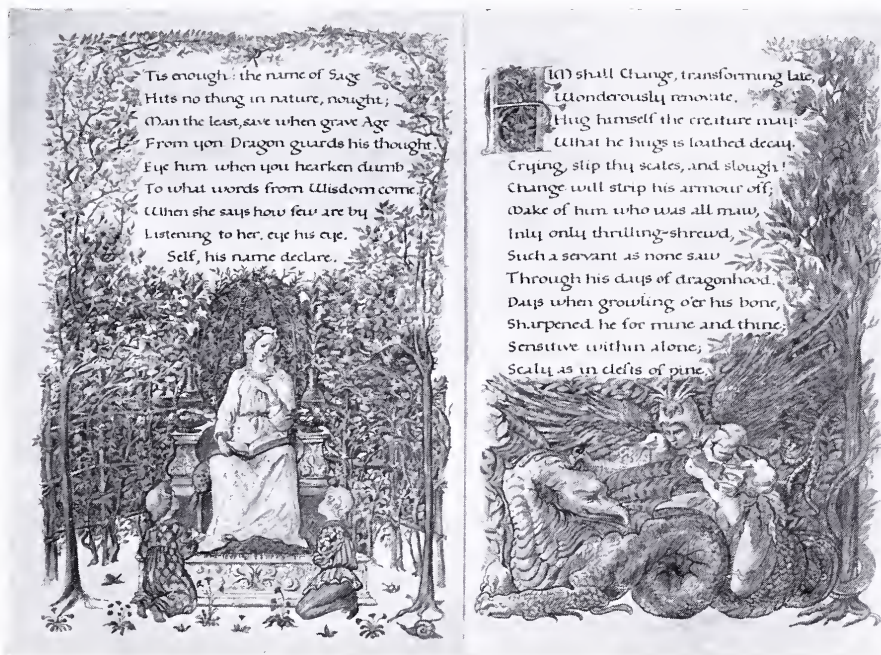 Tis enough: the name of Sage
Hits no thing in nature, nought;
Man the least, save when grave Age
From yon Dragon guards his thought.
Eye him when you hearken dumb
To what words from Wisdom come.
When she says how few are by
Listening to her, eye his eye.
Self, his name declare.
HIM shall Change, transforming late,
Wonderously renovate.
Hug himself the creature may:
What he hugs is loathed decay.
Crying, slip thy scales, and slough!
Change will strip his armour off;
Make of him who was all maw,
Inly only thrilling-shrewd,
Such a servant as none saw
Through his days of dragonhood.
Days when growling o'er his bone,
Sharpened he for mine and thine;
Sensitive within alone;
Scaly as in clefts of pine.